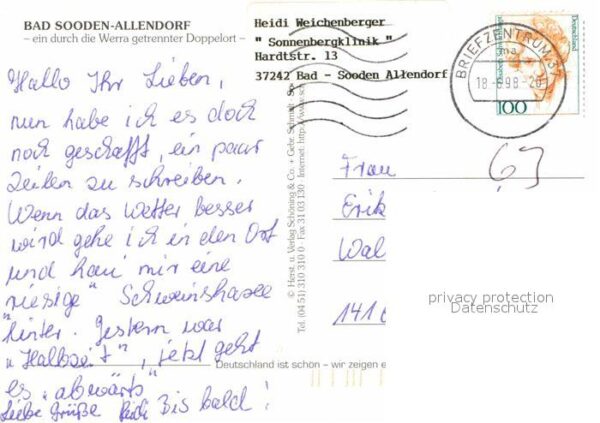 BAD SOODEN-ALLENDORF
– ein durch die Werra getrennter Doppelort –
Hallo Ihr Lieben,
nun habe ich es doch
noch geschafft, ein paar
Zeilen zu schreiben.
Wenn das Wetter besser
wird gehe ich in den Ort
und hau' mir eine
riesige "Schweinshaxe
hinter. Gestern war
"Halbzeit", jetzt geht
es "abwärts"
Liebe Grüße Heidi Bis bald!
Heidi Weichenberger
" Sonnenbergklinik "
Hardtstr. 13
37242 Bad - Sooden Allendorf
© Herst. u. Verlag Schöning & Co. + Gebr. Schmidt
Tel. (04 51) 310 310 0 · Fax 31 03 130 · Internet: http://www.sc
Deutschland ist schön – wir zeigen e
BRIEFZENTRUM 37
ma
18.-6.98.-20
Deutschland
100
Frau
Erik
Wal
141
63
privacy protection
Datenschutz